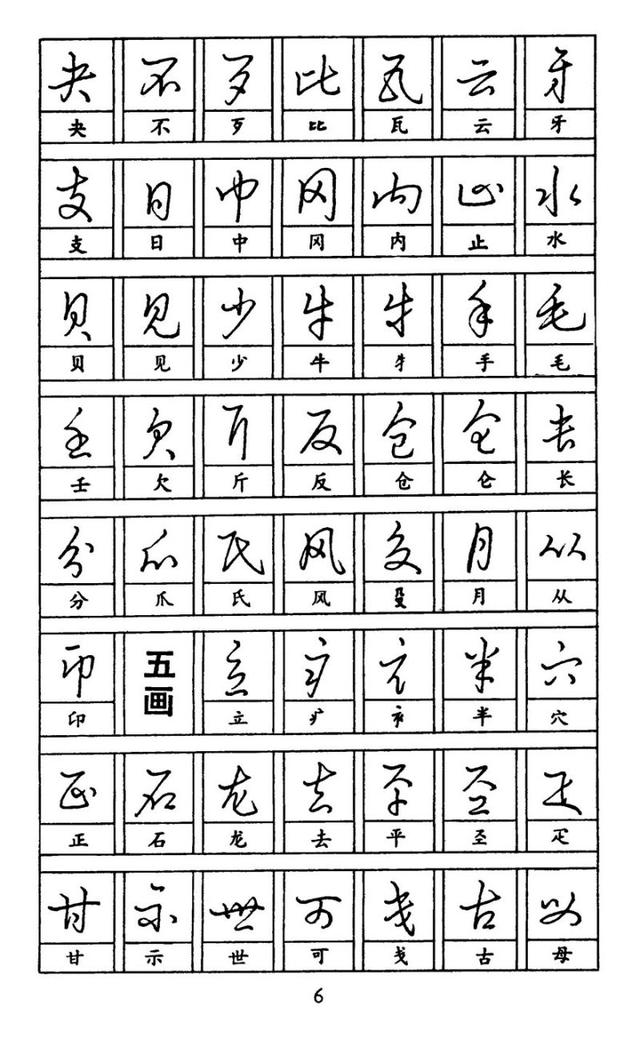 夬 不 歹 比 瓦 云 牙
夬 不 歹 比 瓦 云 牙
支 日 中 冈 内 止 水
支 日 中 冈 内 止 水
贝 见 少 牛 牜 手 毛
贝 见 少 牛 牜 手 毛
壬 欠 斤 反 仓 仑 长
壬 欠 斤 反 仓 仑 长
分 爪 氏 风 殳 月 从
分 爪 氏 风 殳 月 从
印 五画 立 疒 衤 半 穴
印 立 疒 衤 半 穴
正 石 龙 去 平 圣 疋
正 石 龙 去 平 圣 疋
甘 示 世 可 戋 古 母
甘 示 世 可 戋 古 母
6